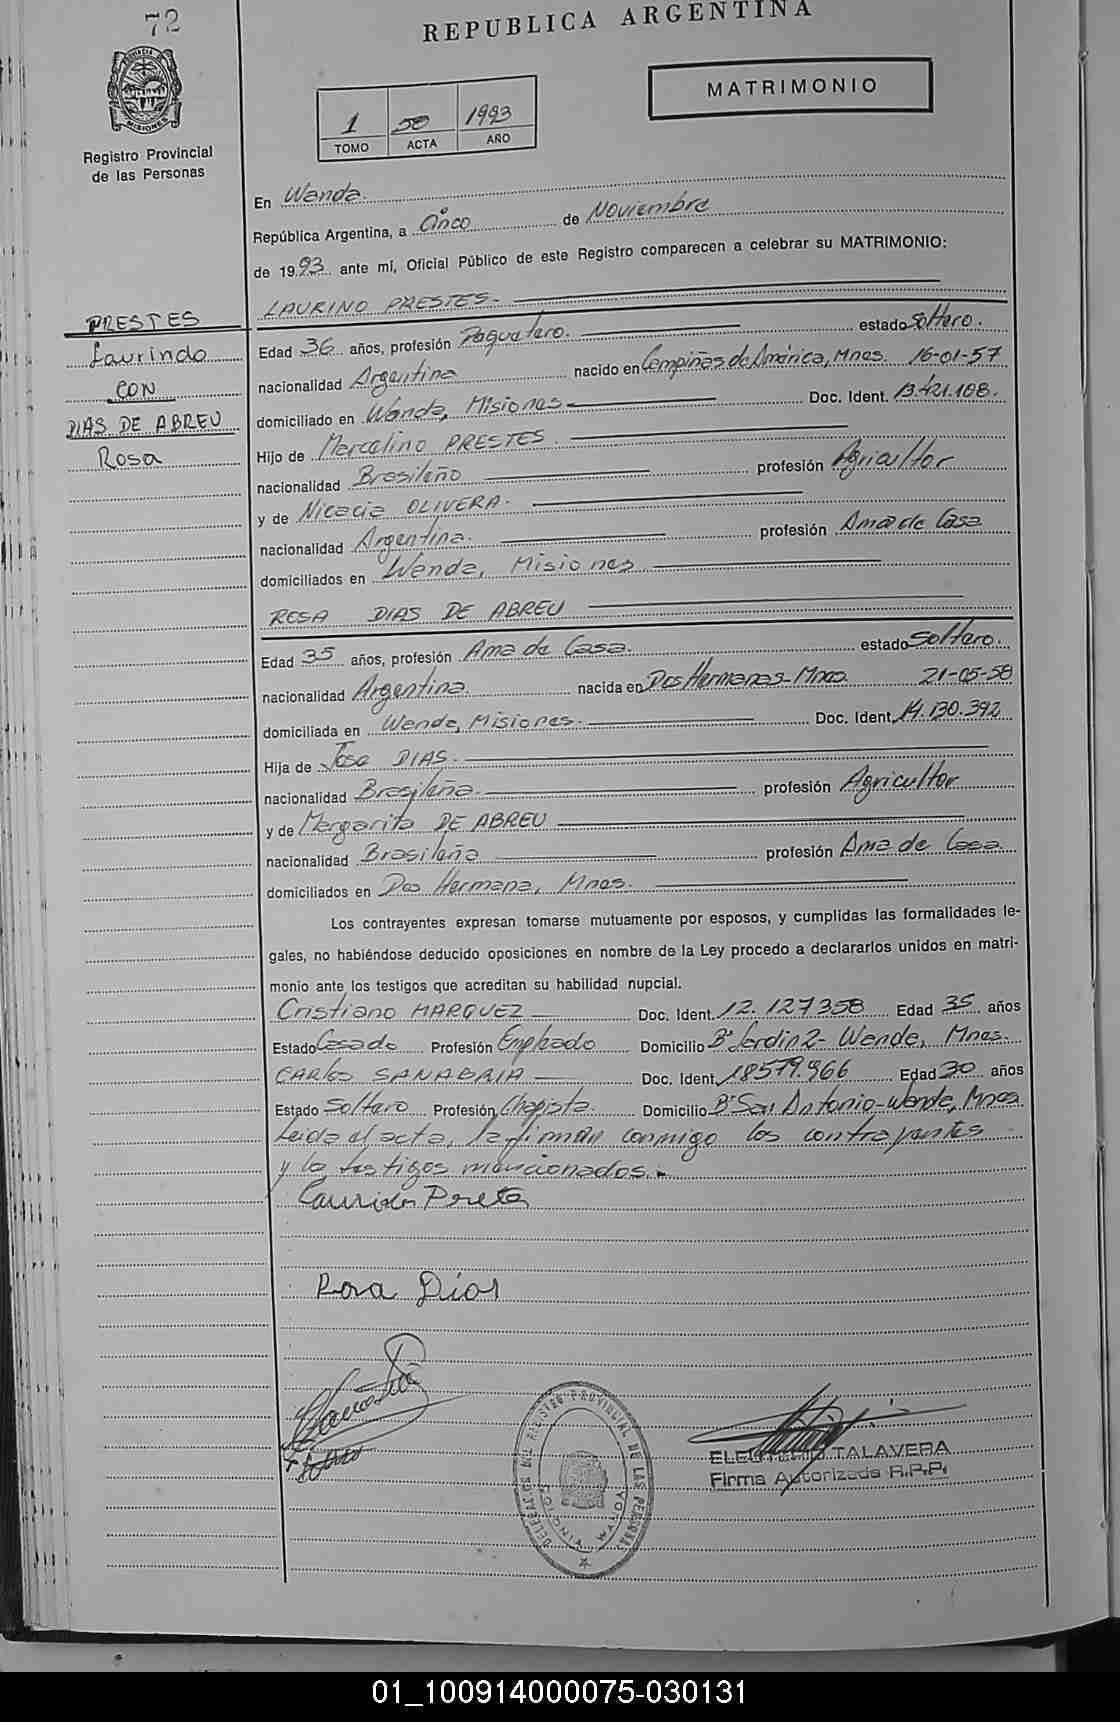 72
REPUBLICA ARGENTINA
PROVINCIA DE MISIONES
Registro Provincial
de las Personas
1 50 1993
TOMO ACTA AÑO
MATRIMONIO
En Wanda.
República Argentina, a Cinco de Noviembre
de 1993 ante mí, Oficial Público de este Registro comparecen a celebrar su MATRIMONIO:
LAURINO PRESTES.
PRESTES
Laurindo
CON
DIAS DE ABREU
Rosa
Edad 36 años, profesión Paquetero. estado Soltero.
nacionalidad Argentina nacido en Campiñas de América, Mnes. 16-01-57
domiciliado en Wanda, Misiones Doc. Ident. 13.421.108.
Hijo de Marcelino PRESTES.
nacionalidad Brasileño profesión Agricultor
y de Nicacia OLIVERA.
nacionalidad Argentina. profesión Ama de Casa
domiciliados en Wanda, Misiones
ROSA DIAS DE ABREU
Edad 35 años, profesión Ama de Casa. estado Soltero.
nacionalidad Argentina. nacida en Dos Hermanas-Mnes. 21-05-58
domiciliada en Wanda, Misiones. Doc. Ident. 14.130.392
Hija de Jose DIAS.
nacionalidad Brasileña. profesión Agricultor
y de Margarita DE ABREU
nacionalidad Brasileña profesión Ama de Casa
domiciliados en Dos Hermana, Mnes.
Los contrayentes expresan tomarse mutuamente por esposos, y cumplidas las formalidades le-
gales, no habiéndose deducido oposiciones en nombre de la Ley procedo a declararlos unidos en matri-
monio ante los testigos que acreditan su habilidad nupcial.
Cristiano MARQUEZ Doc. Ident. 12.127358 Edad 35 años
Estado Casado Profesión Empleado Domicilio Bº Jardin 2- Wanda, Mnes.
CARLOS SANABRIA Doc. Ident. 18579.966 Edad 30 años
Estado Soltero Profesión Chapista. Domicilio Bº San Antonio-Wanda, Mnes
Leida el acta, la firman conmigo los contrayentes
y lo testigos mencionados.-
Rosa Días
DELEGACION DEL REGISTRO PROVINCIAL DE LAS PERSONAS
WANDA MISIONES
TALAVERA
Firma Autorizada R.P.P.
01_100914000075-030131